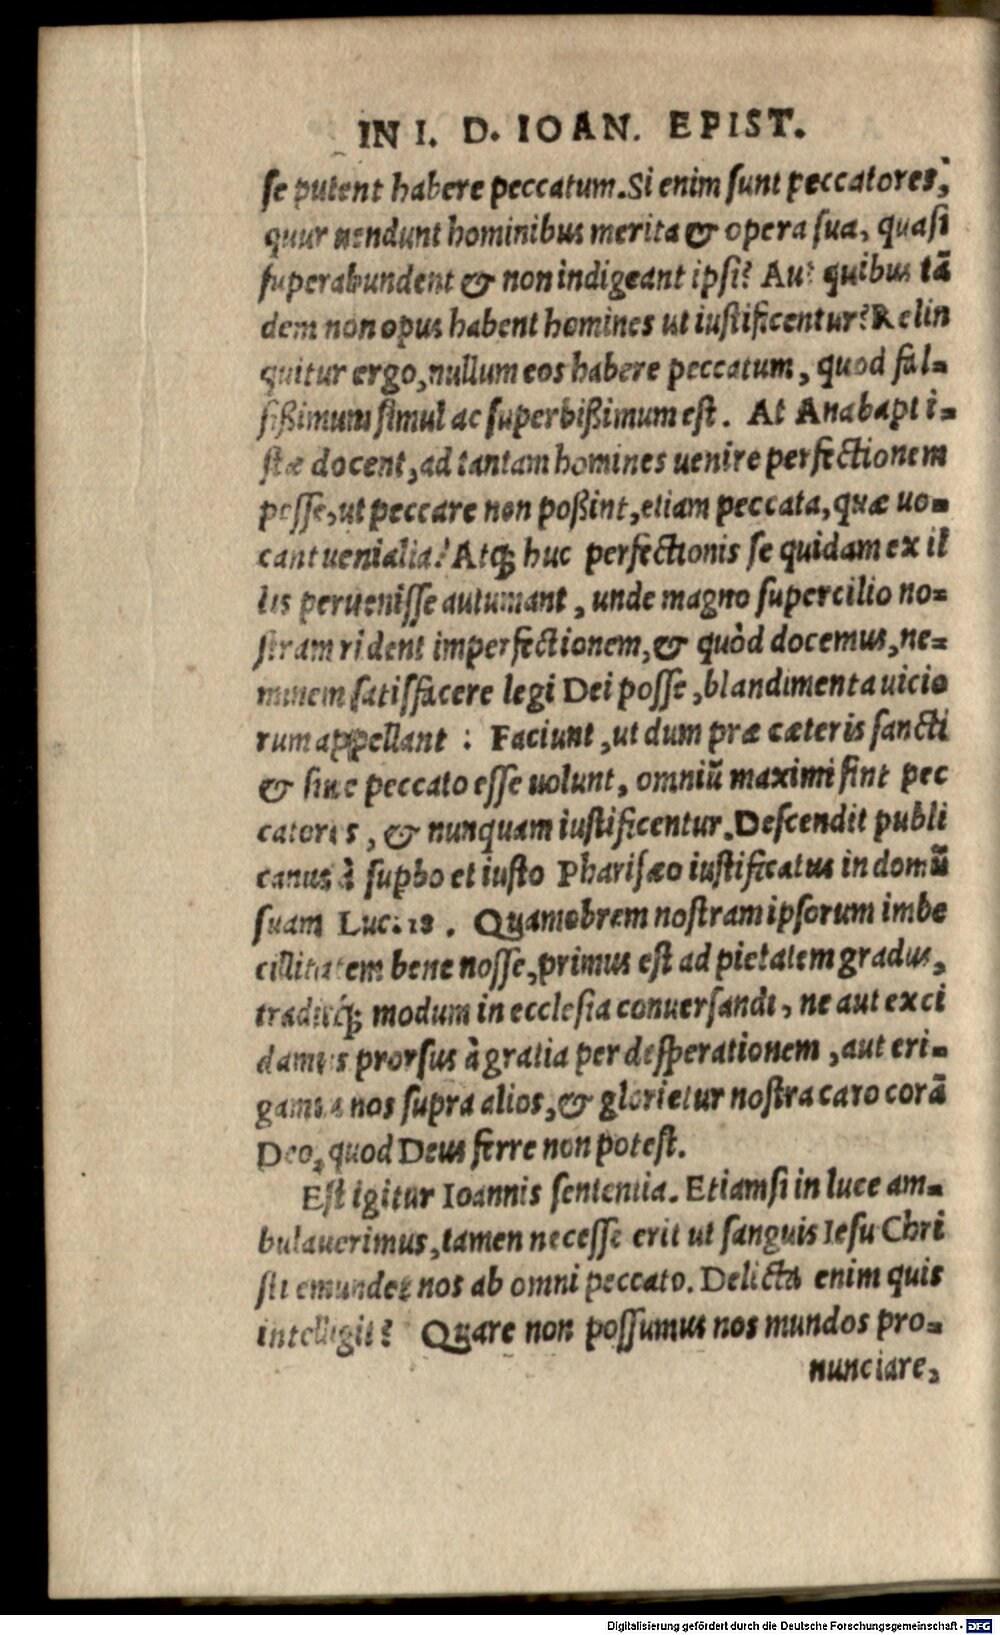 IN I. D. IOAN. EPIST.
se putent habere peccatum. Si enim sunt peccatores,
quur uendunt hominibus merita & opera sua, quasi
superabundent & non indigeant ipsi? Aut quibus tā
dem non opus habent homines ut iustificentur? Relin
quitur ergo, nullum eos habere peccatum, quod fal-
sißimum simul ac superbißimum est. At Anabapti-
stæ docent, ad tantam homines uenire perfectionem
posse, ut peccare non poßint, etiam peccata, quæ uo-
cant uenialia? Atq; huc perfectionis se quidam ex il
lis peruenisse autumant, unde magno supercilio no-
stram rident imperfectionem, & quòd docemus, ne-
minem satisfacere legi Dei posse, blandimenta uicio
rum appellant: Faciunt, ut dum præ cæteris sancti
& sine peccato esse uolunt, omniū maximi sint pec
catores, & nunquam iustificentur. Descendit publi
canus à supbo et iusto Pharisæo iustificatus in domū
suam Luc. 18. Quamobrem nostram ipsorum imbe
cillitatem bene nosse, primus est ad pietatem gradus,
traditq; modum in ecclesia conuersandi, ne aut exci
damus prorsus à gratia per desperationem, aut eri-
gamus nos supra alios, & glorietur nostra caro corā
Deo, quod Deus ferre non potest.
Est igitur Ioannis sententia. Etiamsi in luce am-
bulauerimus, tamen necesse erit ut sanguis Iesu Chri
sti emundet nos ab omni peccato. Delicta enim quis
intelligit? Quare non possumus nos mundos pro-
nunciare,
Digitalisierung gefördert durch die Deutsche Forschungsgemeinschaft - DFG